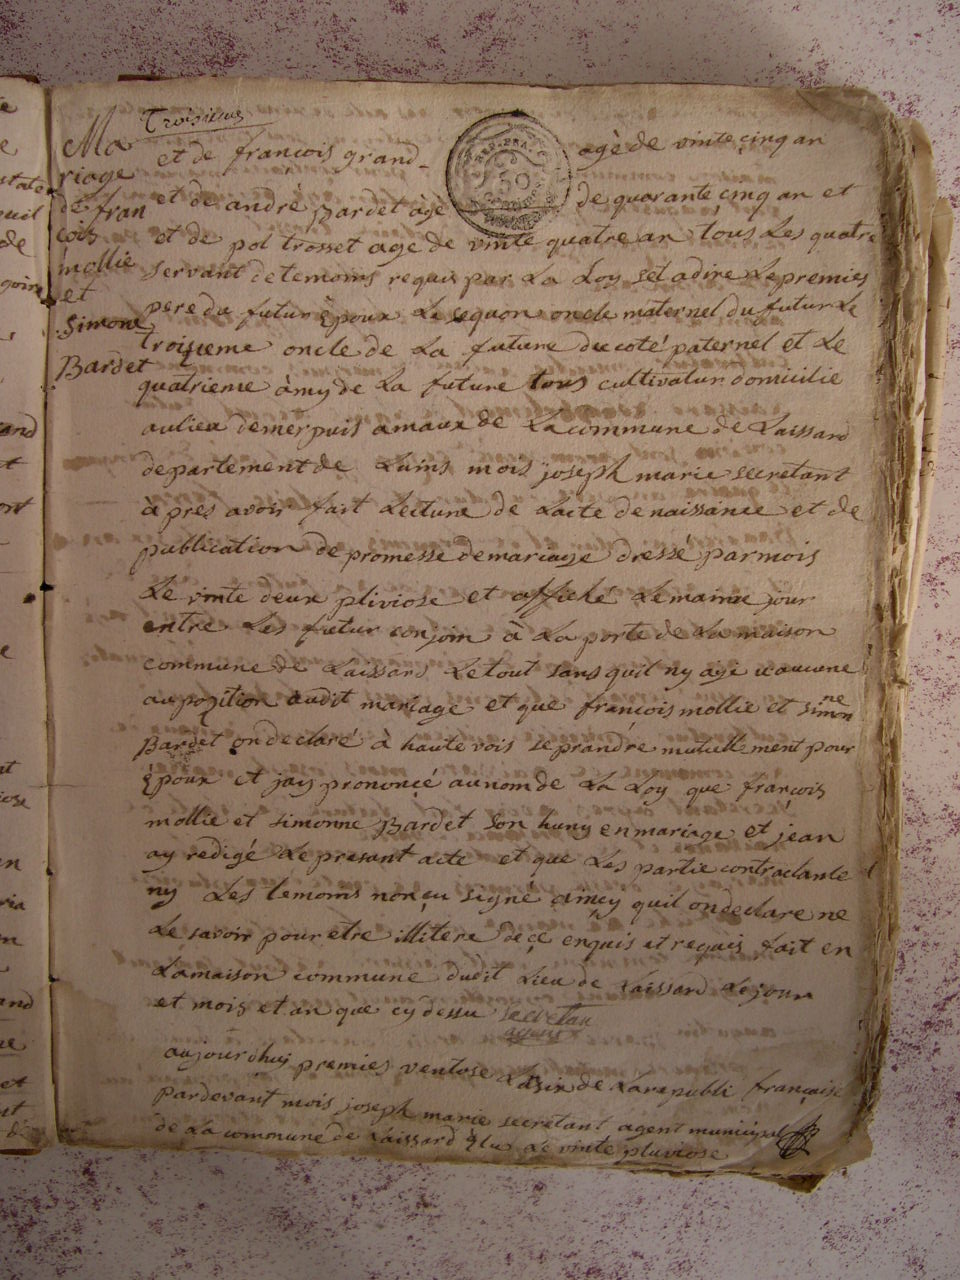 Troisieme
Ma
riage
de fran
cois
mollie
et
Simone
Bardet
et de francois grand- agè de vinte cinq an
et de andrè Bardet àgè de quarante cinq an et
et de pol trosset age de vinte quatre an tous Les quatre
servant de temoins requis par La Loy setadire Le premies
pere du futur Epoux Le sequon oncle maternel du futur Le
troisieme oncle de La future du coté paternel et Le
quatrieme àmy de La future tous cultivatur domicilie
aulieu de merpuis amaux de La commune de Laissard
departement de Lains mois joseph marie secretant
àpres avoir fait Lecture de Lacte de naissance et de
publication de promesse de mariage dressé par mois
Le vinte deux pliviose et affiché Le maime jour
entre Les futur conjoin à La porte de La maison
commune de Laissard Le tout sans quil ny aye u aucune
aupozition audit mariage et que francois mollie et simonne
Bardet on declaré à haute vois se prandre mutuellement pour
Epoux et jay prononcé au nom de La Loy que francois
mollie et simonne Bardet son huny en mariage et jean
ay redigé Le presant acte et que Les partie contractante
ny Les temoins non eu signé aincy quil on declare ne
Le savoir pour etre illitere de ce enquis et requis fait en
Lamaison commune dudit Lieu de Laissard Le jour
et mois et an que cy dessu secretan
agent
aujourdhuy premies ventose Lansix de Larepubli française
pardevant mois joseph marie secretant agent municipal
de La commune de Laissard Elu Le vinte pluviose